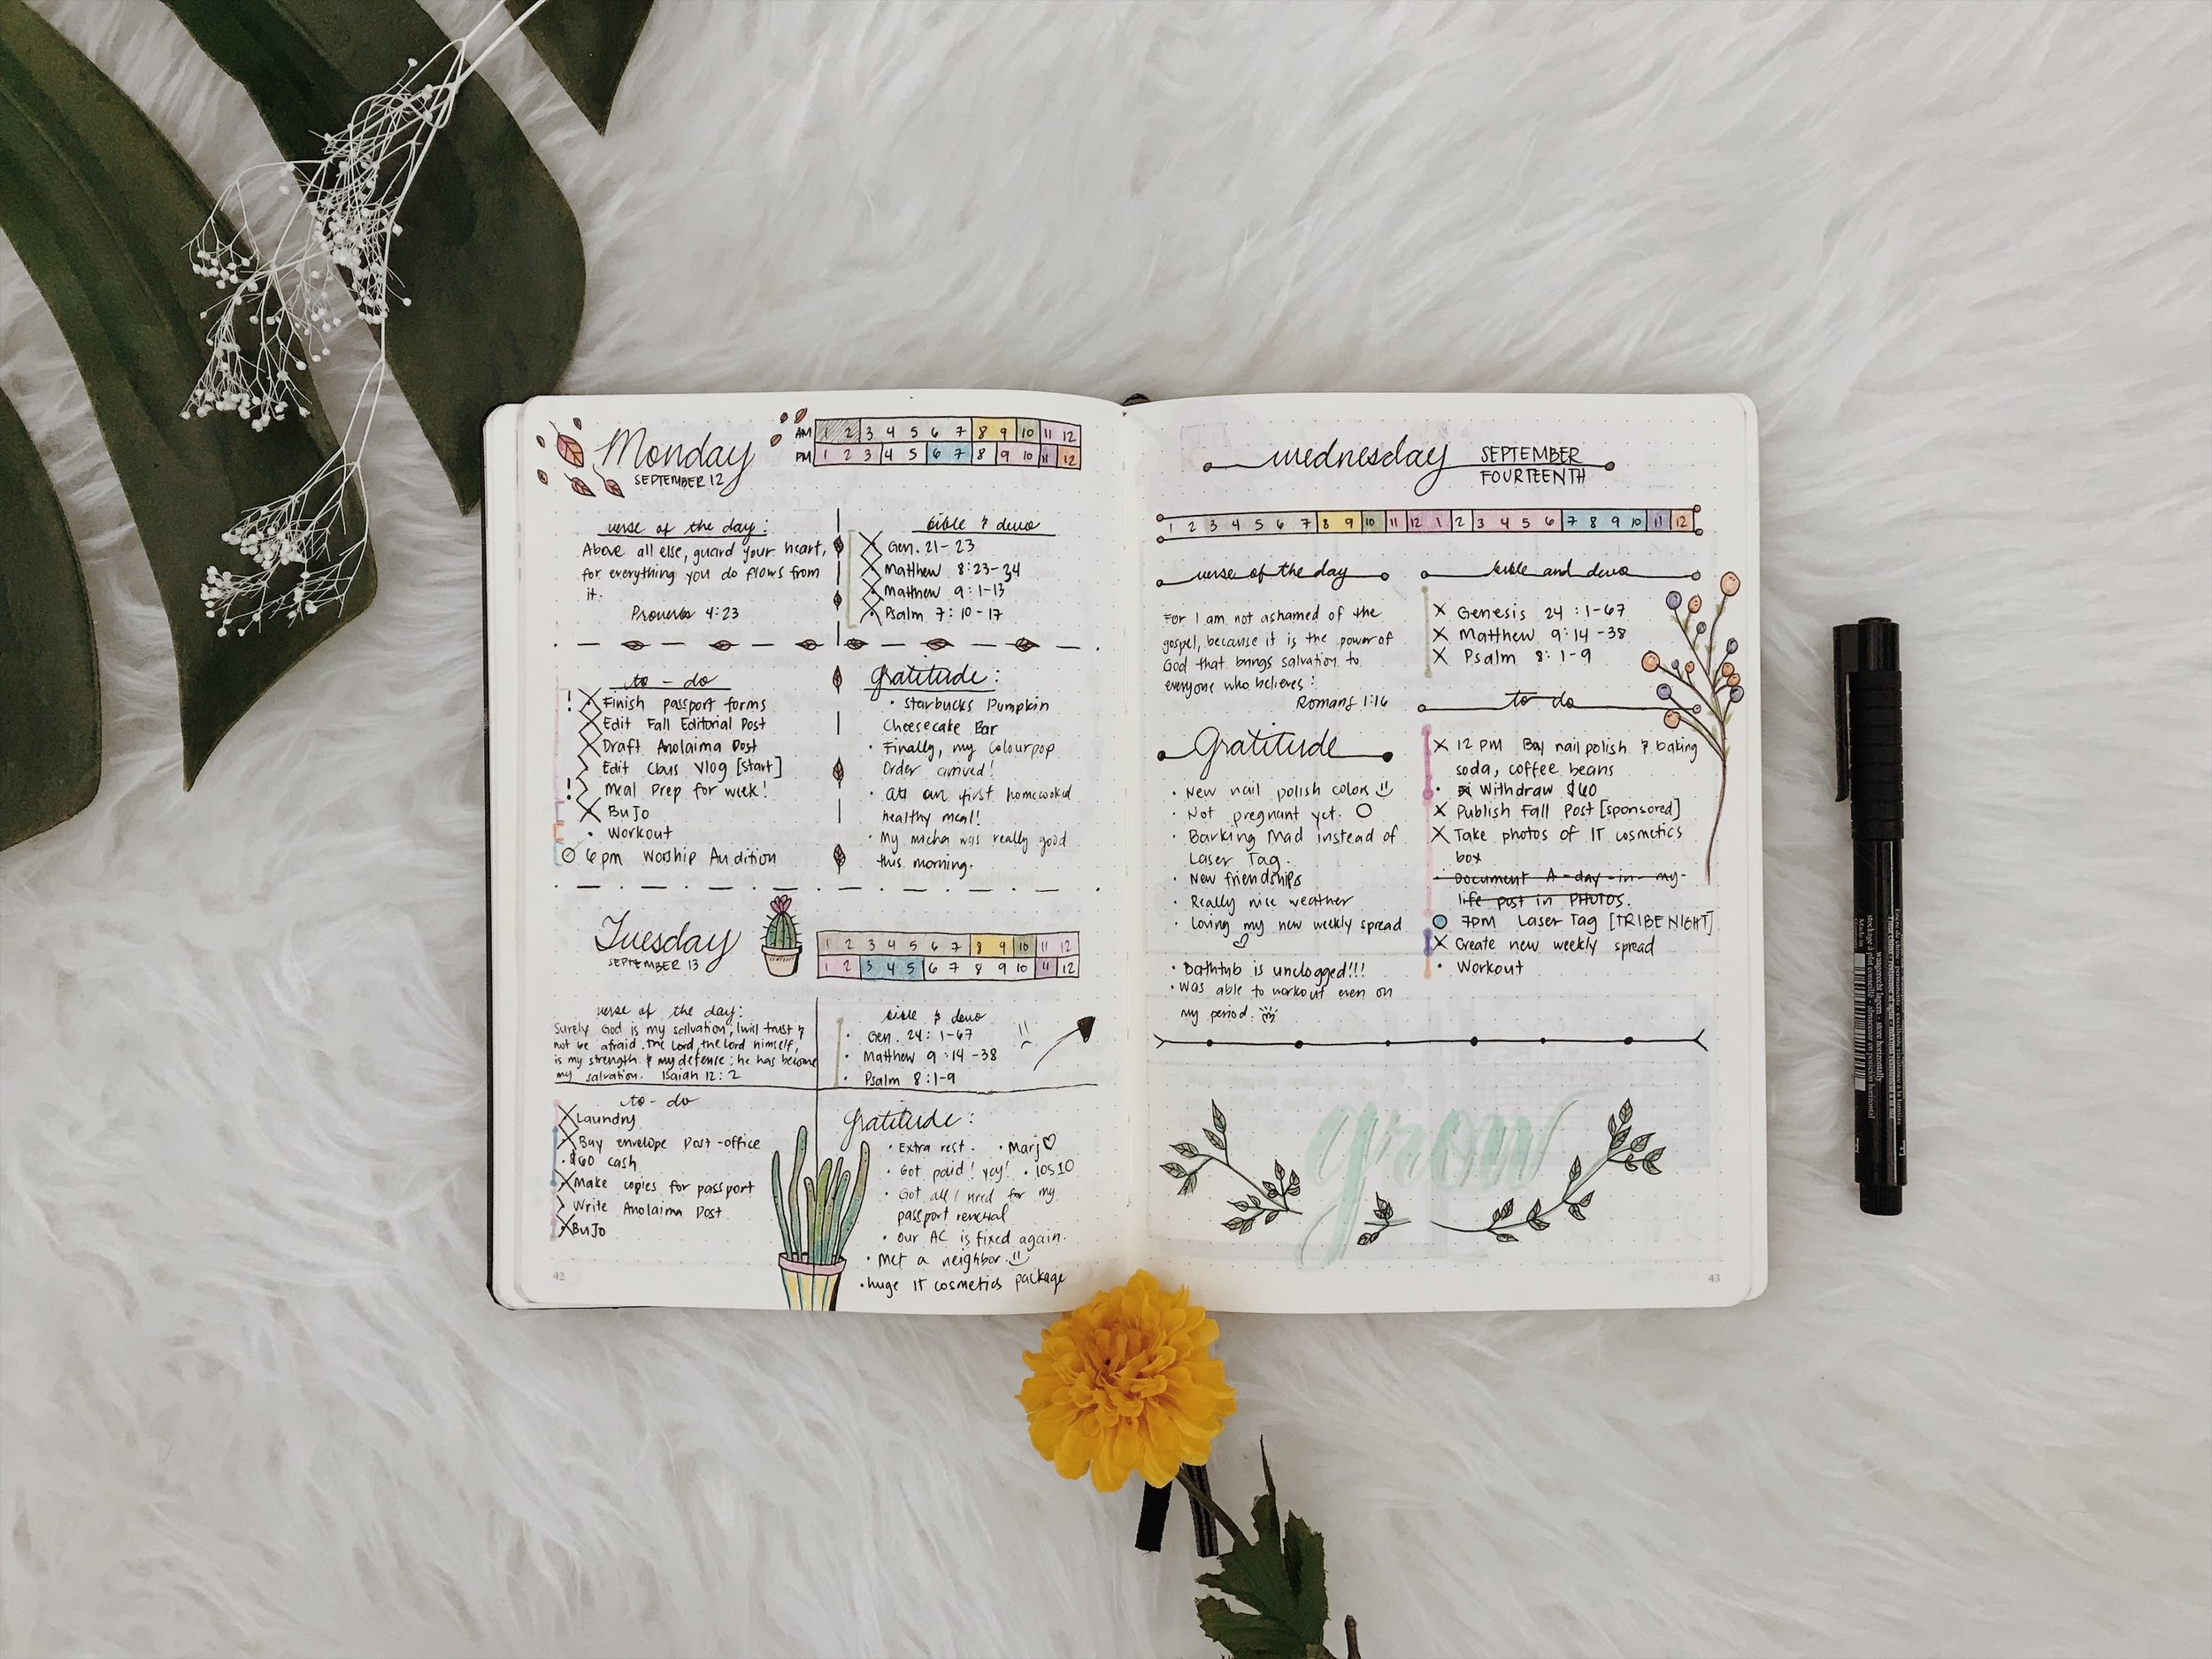 Monday
SEPTEMBER 12
AM 1 2 3 4 5 6 7 8 9 10 11 12
PM 1 2 3 4 5 6 7 8 9 10 11 12
verse of the day:
Above all else, guard your heart,
for everything you do flows from
it.
Proverbs 4:23
bible & devo
Gen. 21-23
Matthew 8:23-34
Matthew 9:1-13
Psalm 7:10-17
to-do
! Finish passport forms
Edit Fall Editorial Post
Draft Anolaima Post
Edit Vlog [start]
! Meal Prep for week!
BuJo
• Workout
6pm Worship Audition
gratitude:
• Starbucks Pumpkin
Cheesecake Bar
• Finally, my Colourpop
Order arrived!
• our first homecooked
healthy meal!
• My was really good
this morning.
Tuesday
SEPTEMBER 13
1 2 3 4 5 6 7 8 9 10 11 12
1 2 3 4 5 6 7 8 9 10 11 12
verse of the day:
Surely God is my salvation, I will trust &
not be afraid. The Lord, the Lord himself,
is my strength & my defense; he has become
my salvation. Isaiah 12:2
bible & devo
• Gen. 24: 1-67
• Matthew 9:14-38
• Psalm 8:1-9
to-do
Laundry
Buy envelope Post-office
• $60 cash
Make copies for passport
Write Anolaima Post
BuJo
gratitude:
• Extra rest. • Marj♡
• Got paid! yay! • ios10
• Got all I need for my
passport renewal
• our AC is fixed again.
• Met a neighbor.
• huge IT cosmetics package
42
wednesday SEPTEMBER
FOURTEENTH
1 2 3 4 5 6 7 8 9 10 11 12 1 2 3 4 5 6 7 8 9 10 11 12
verse of the day
For I am not ashamed of the
gospel, because it is the power of
God that brings salvation to
everyone who believes:
Romans 1:16
bible and devo
X Genesis 24:1-67
X Matthew 9:14-38
X Psalm 8:1-9
Gratitude
• New nail polish colors
• Not pregnant yet.
• Barking Mad instead of
Laser Tag.
• New friendships
• Really nice weather
• Loving my new weekly spread
♡
• Bathtub is unclogged!!!
• Was able to workout even on
my period.
to do
X 12 PM Buy nail polish & baking
soda, coffee beans
• Withdraw $60
X Publish Fall Post [sponsored]
X Take photos of IT cosmetics
box
• Document A-day-in-my-
life post in PHOTOS.
7pm Laser Tag [TRIBE NIGHT]
X Create new weekly spread
• Workout
grow
43